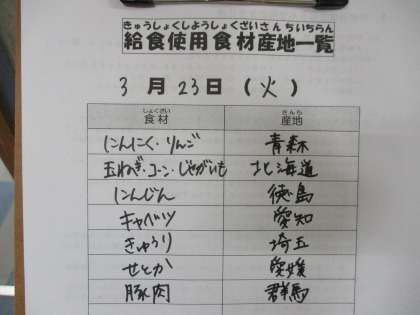 きゅうしょくしようしょくざいさんちいちらん
給食使用食材産地一覧
3月23日(火)
しょくざい さんち
食材 産地
にんにく・りんご 青森
玉ねぎ・コーン・じゃがいも 北海道
にんじん 徳島
キャベツ 愛知
きゅうり 埼玉
せとか 愛媛
豚肉 群馬